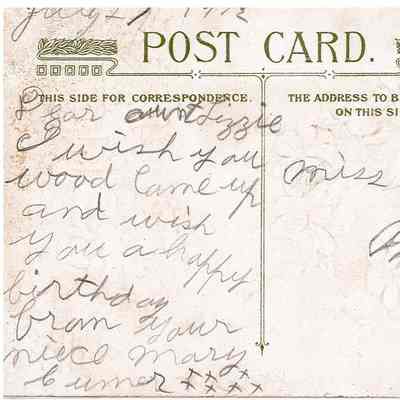 July 27 1912
POST CARD.
THIS SIDE FOR CORRESPONDENCE.
THE ADDRESS TO B
ON THIS SI
Dear aunt Lizzie
I wish you
wood Came up
and wish
you a happy
birthday
from your
niece Mary
x x x
x x x x
miss